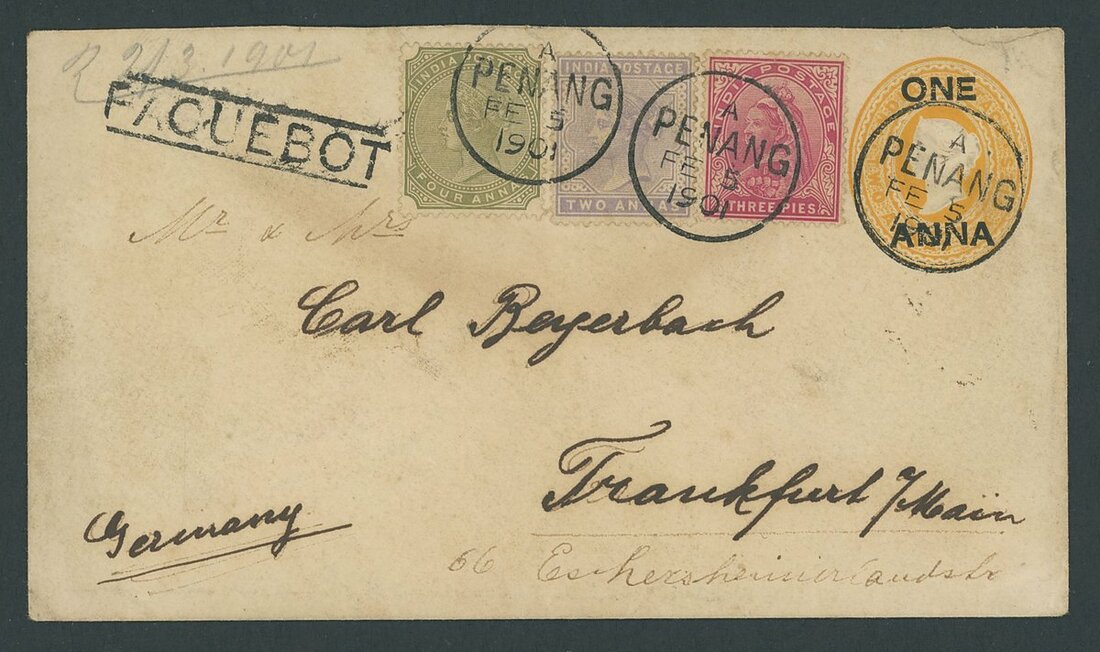 R 2/3.1901
PAQUEBOT
INDIA
FOUR ANNA
INDIA POSTAGE
TWO ANNA
INDIA POSTAGE
THREE PIES
ONE
ANNA
A
PENANG
FE 5
1901
A
PENANG
FE 5
1901
A
PENANG
FE 5
1901
Mr & Mrs
Carl Beyerbach
Frankfurt /Main
Germany
66 Eschersheimerlandstr